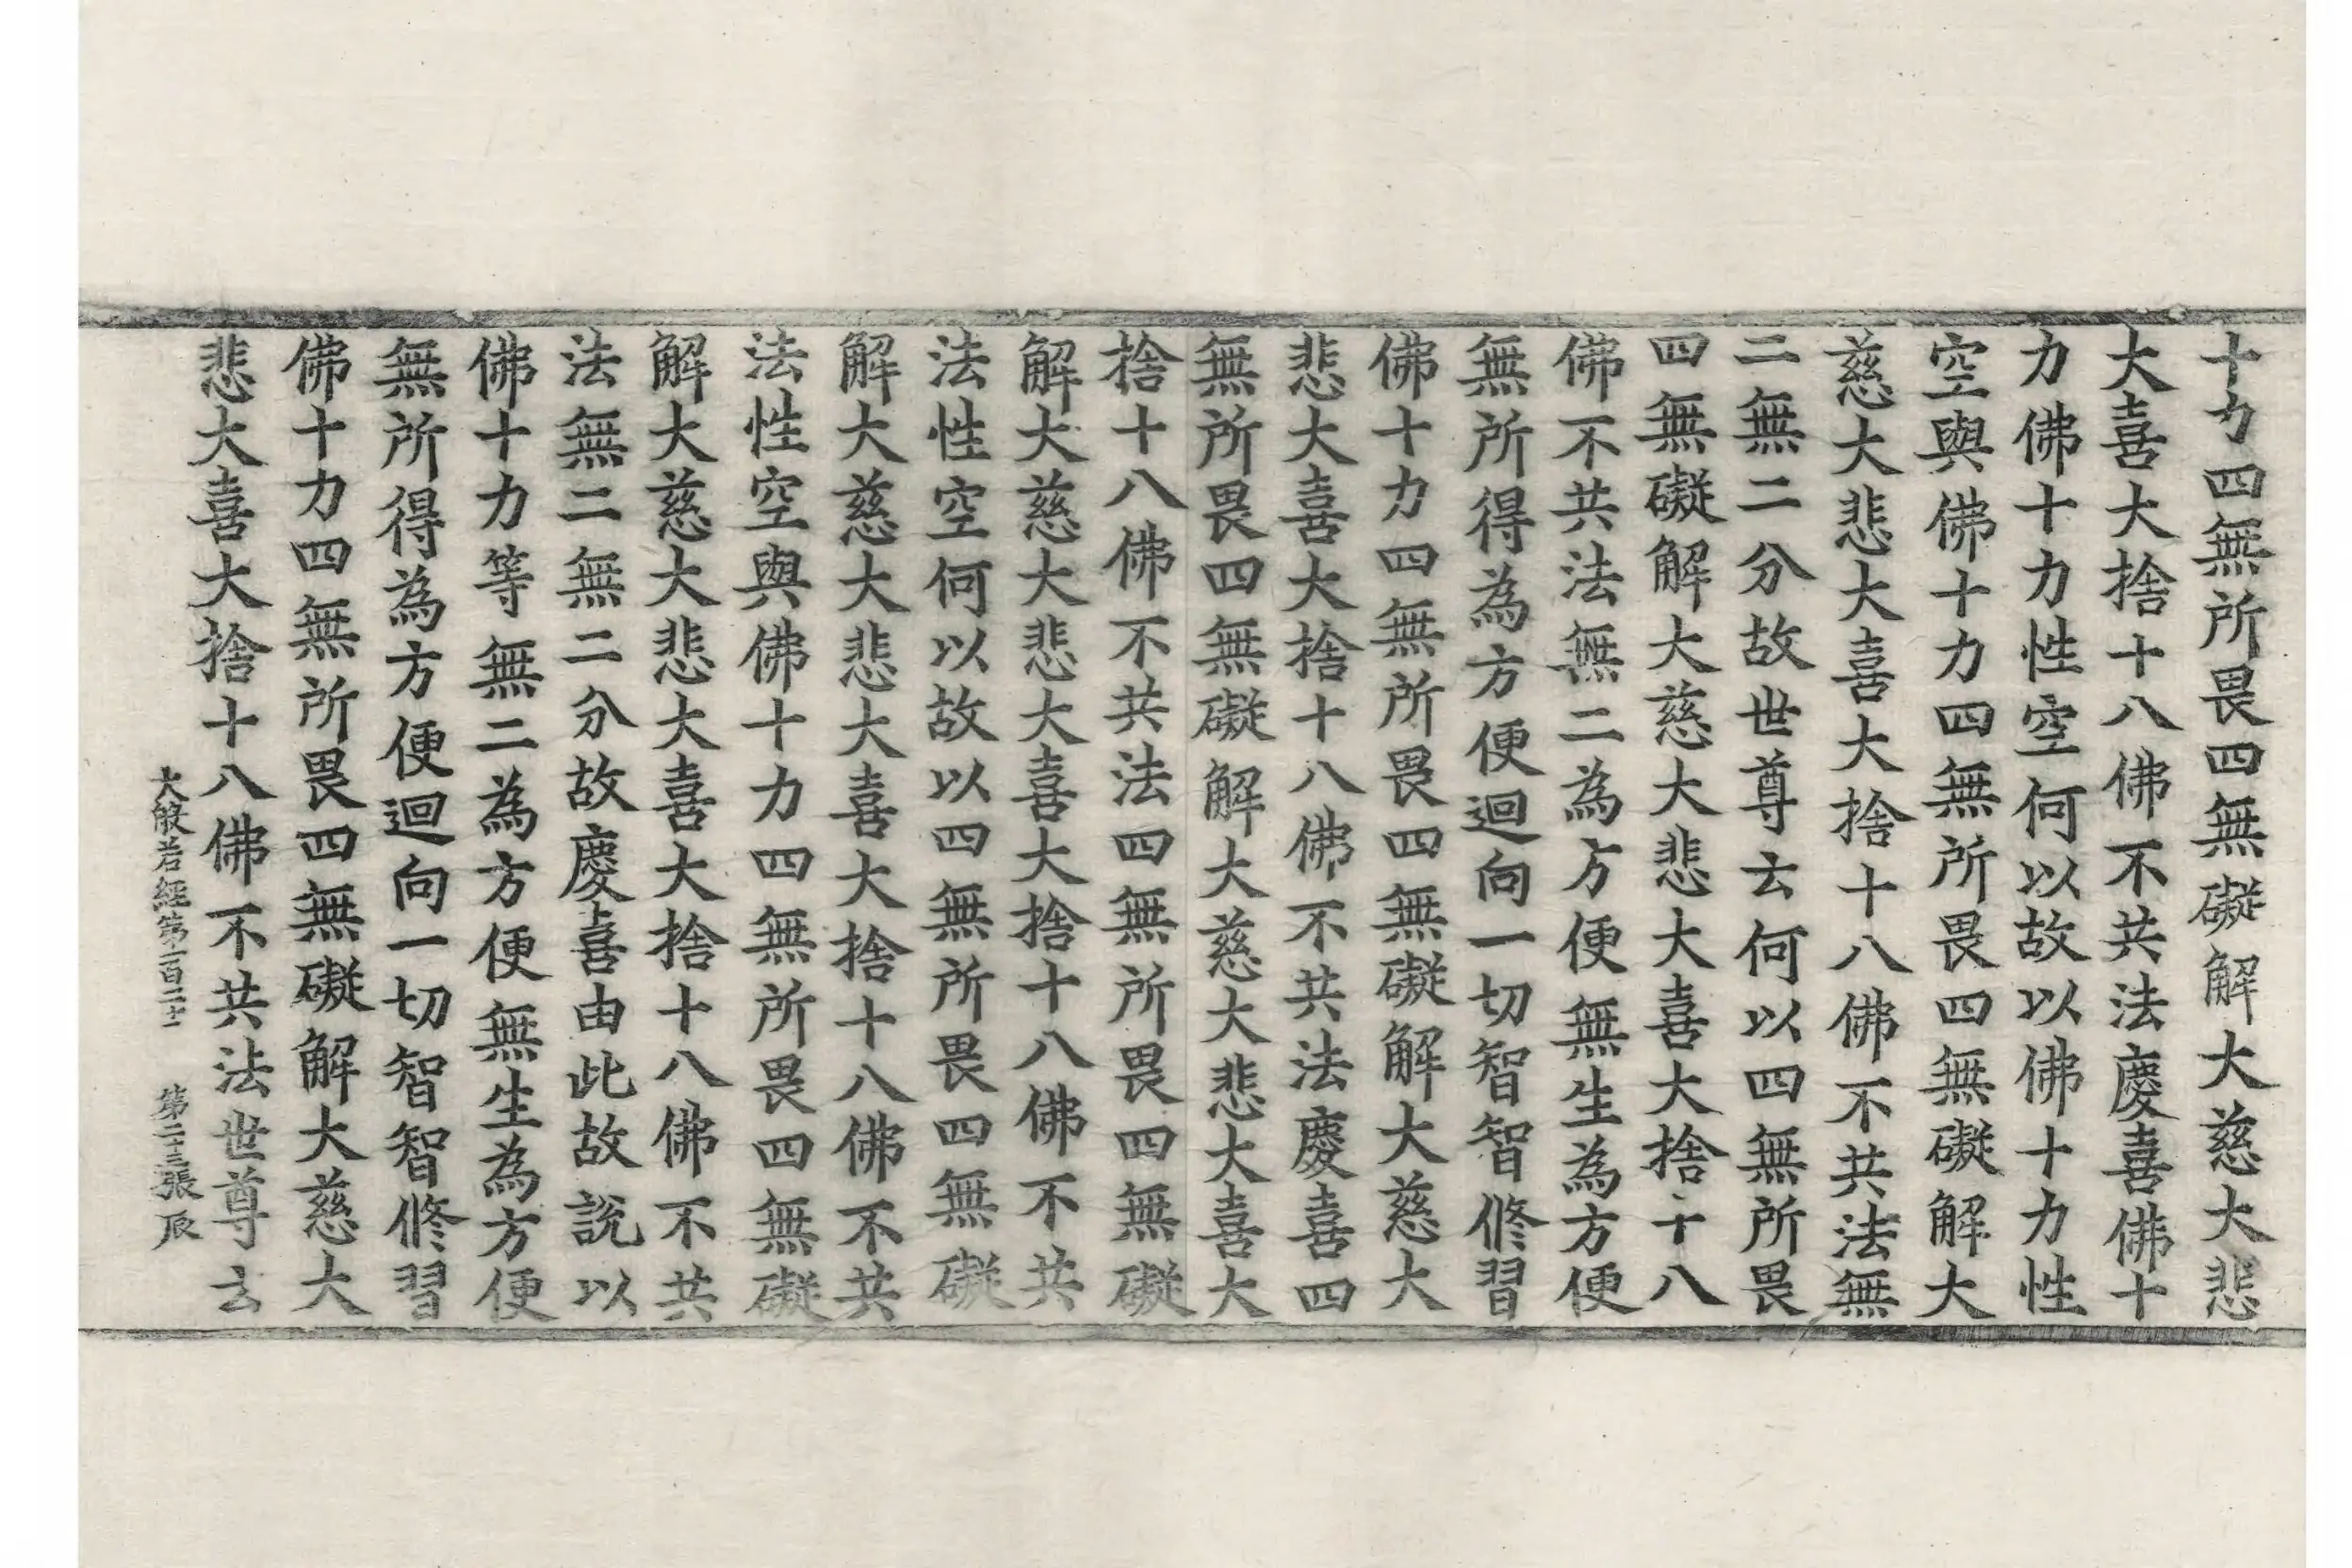 十力四無所畏四無礙解大慈大悲
大喜大捨十八佛不共法慶喜佛十
力佛十力性空何以故以佛十力性
空與佛十力四無所畏四無礙解大
慈大悲大喜大捨十八佛不共法無
二無二分故世尊云何以四無所畏
四無礙解大慈大悲大喜大捨十八
佛不共法無二為方便無生為方便
無所得為方便迴向一切智智修習
佛十力四無所畏四無礙解大慈大
悲大喜大捨十八佛不共法慶喜四
無所畏四無礙解大慈大悲大喜大
捨十八佛不共法四無所畏四無礙
解大慈大悲大喜大捨十八佛不共
法性空何以故以四無所畏四無礙
解大慈大悲大喜大捨十八佛不共
法性空與佛十力四無所畏四無礙
解大慈大悲大喜大捨十八佛不共
法無二無二分故慶喜由此故說以
佛十力等無二為方便無生為方便
無所得為方便迴向一切智智修習
佛十力四無所畏四無礙解大慈大
悲大喜大捨十八佛不共法世尊云
大般若經第一百二十一 第二十三張 辰